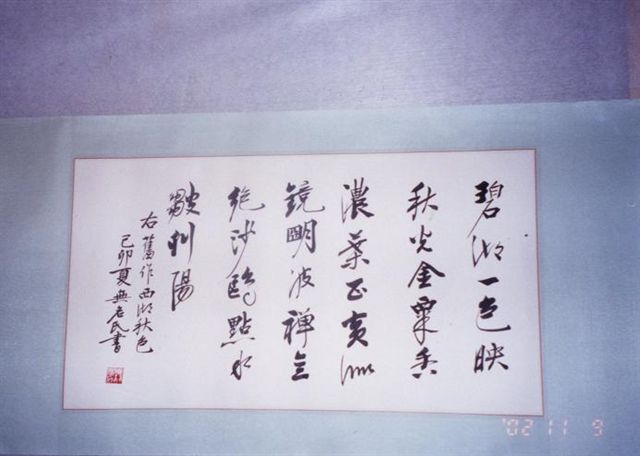 碧湖一色映
秋光金粟香
濃葉正黃
鏡明波禅
絕沙鷗點水
皺斜陽
右舊作西湖秋色
己卯夏無名氏書
'02 11 9